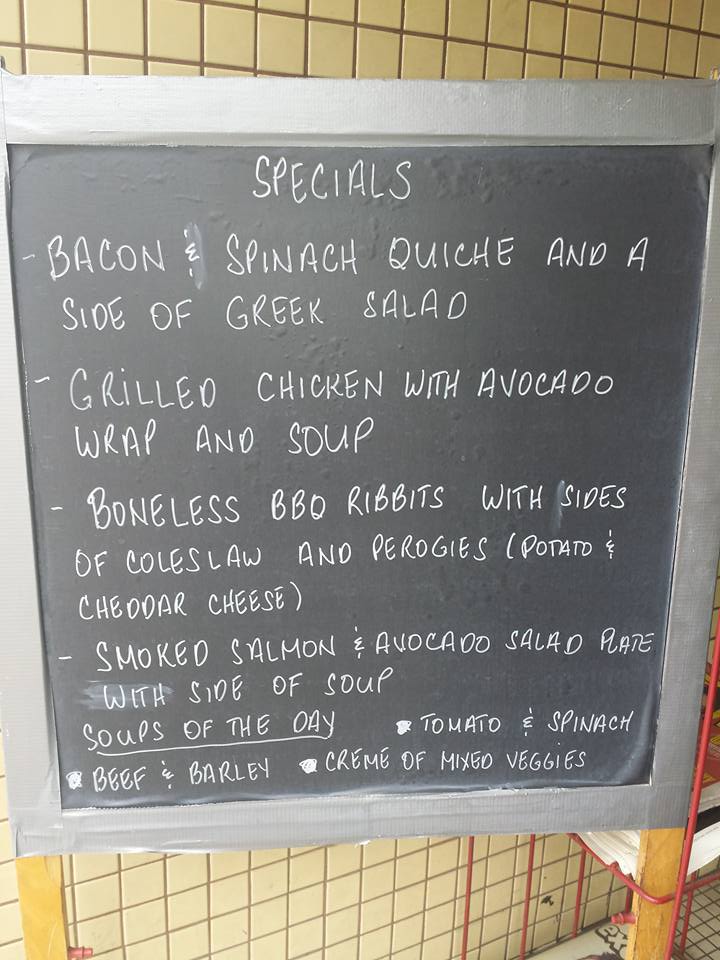 SPECIALS
- BACON & SPINACH QUICHE AND A
SIDE OF GREEK SALAD
- GRILLED CHICKEN WITH AVOCADO
WRAP AND SOUP
- BONELESS BBQ RIBBITS WITH SIDES
OF COLESLAW AND PEROGIES (POTATO &
CHEDDAR CHEESE)
- SMOKED SALMON & AVOCADO SALAD PLATE
WITH SIDE OF SOUP
SOUPS OF THE DAY • TOMATO & SPINACH
• BEEF & BARLEY • CREME OF MIXED VEGGIES